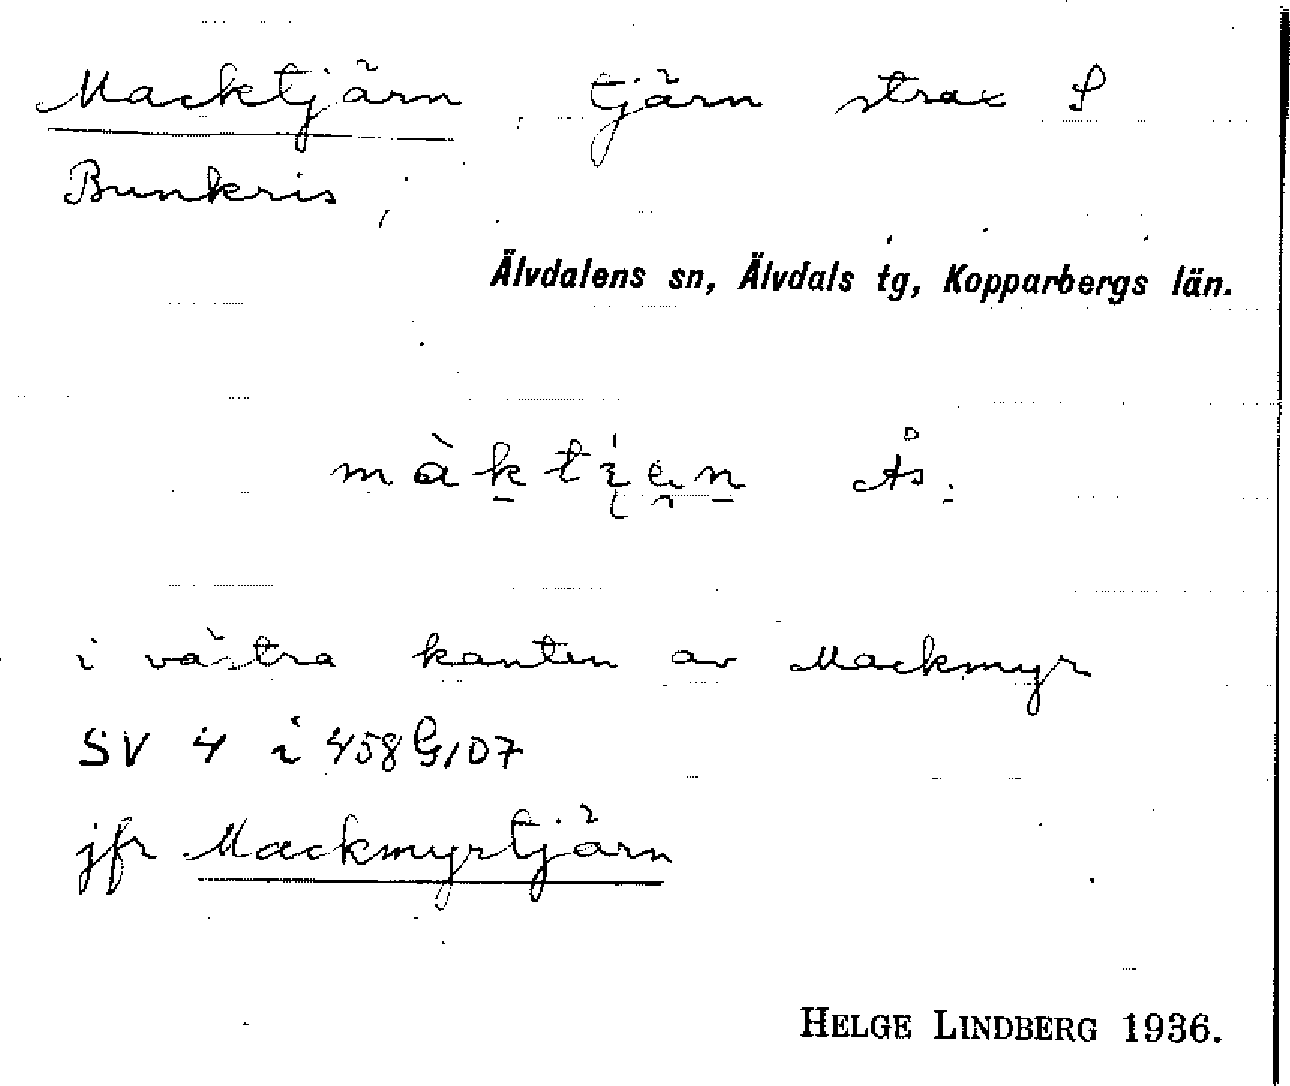 Macktjärn tjärn strax S
Bunkris ;
Älvdalens sn, Älvdals tg, Kopparbergs län.
màktien Ås.
i västra kanten av Mackmyr
SV 4 i 458 G/07
jfr Mackmyrtjärn
HELGE LINDBERG 1936.